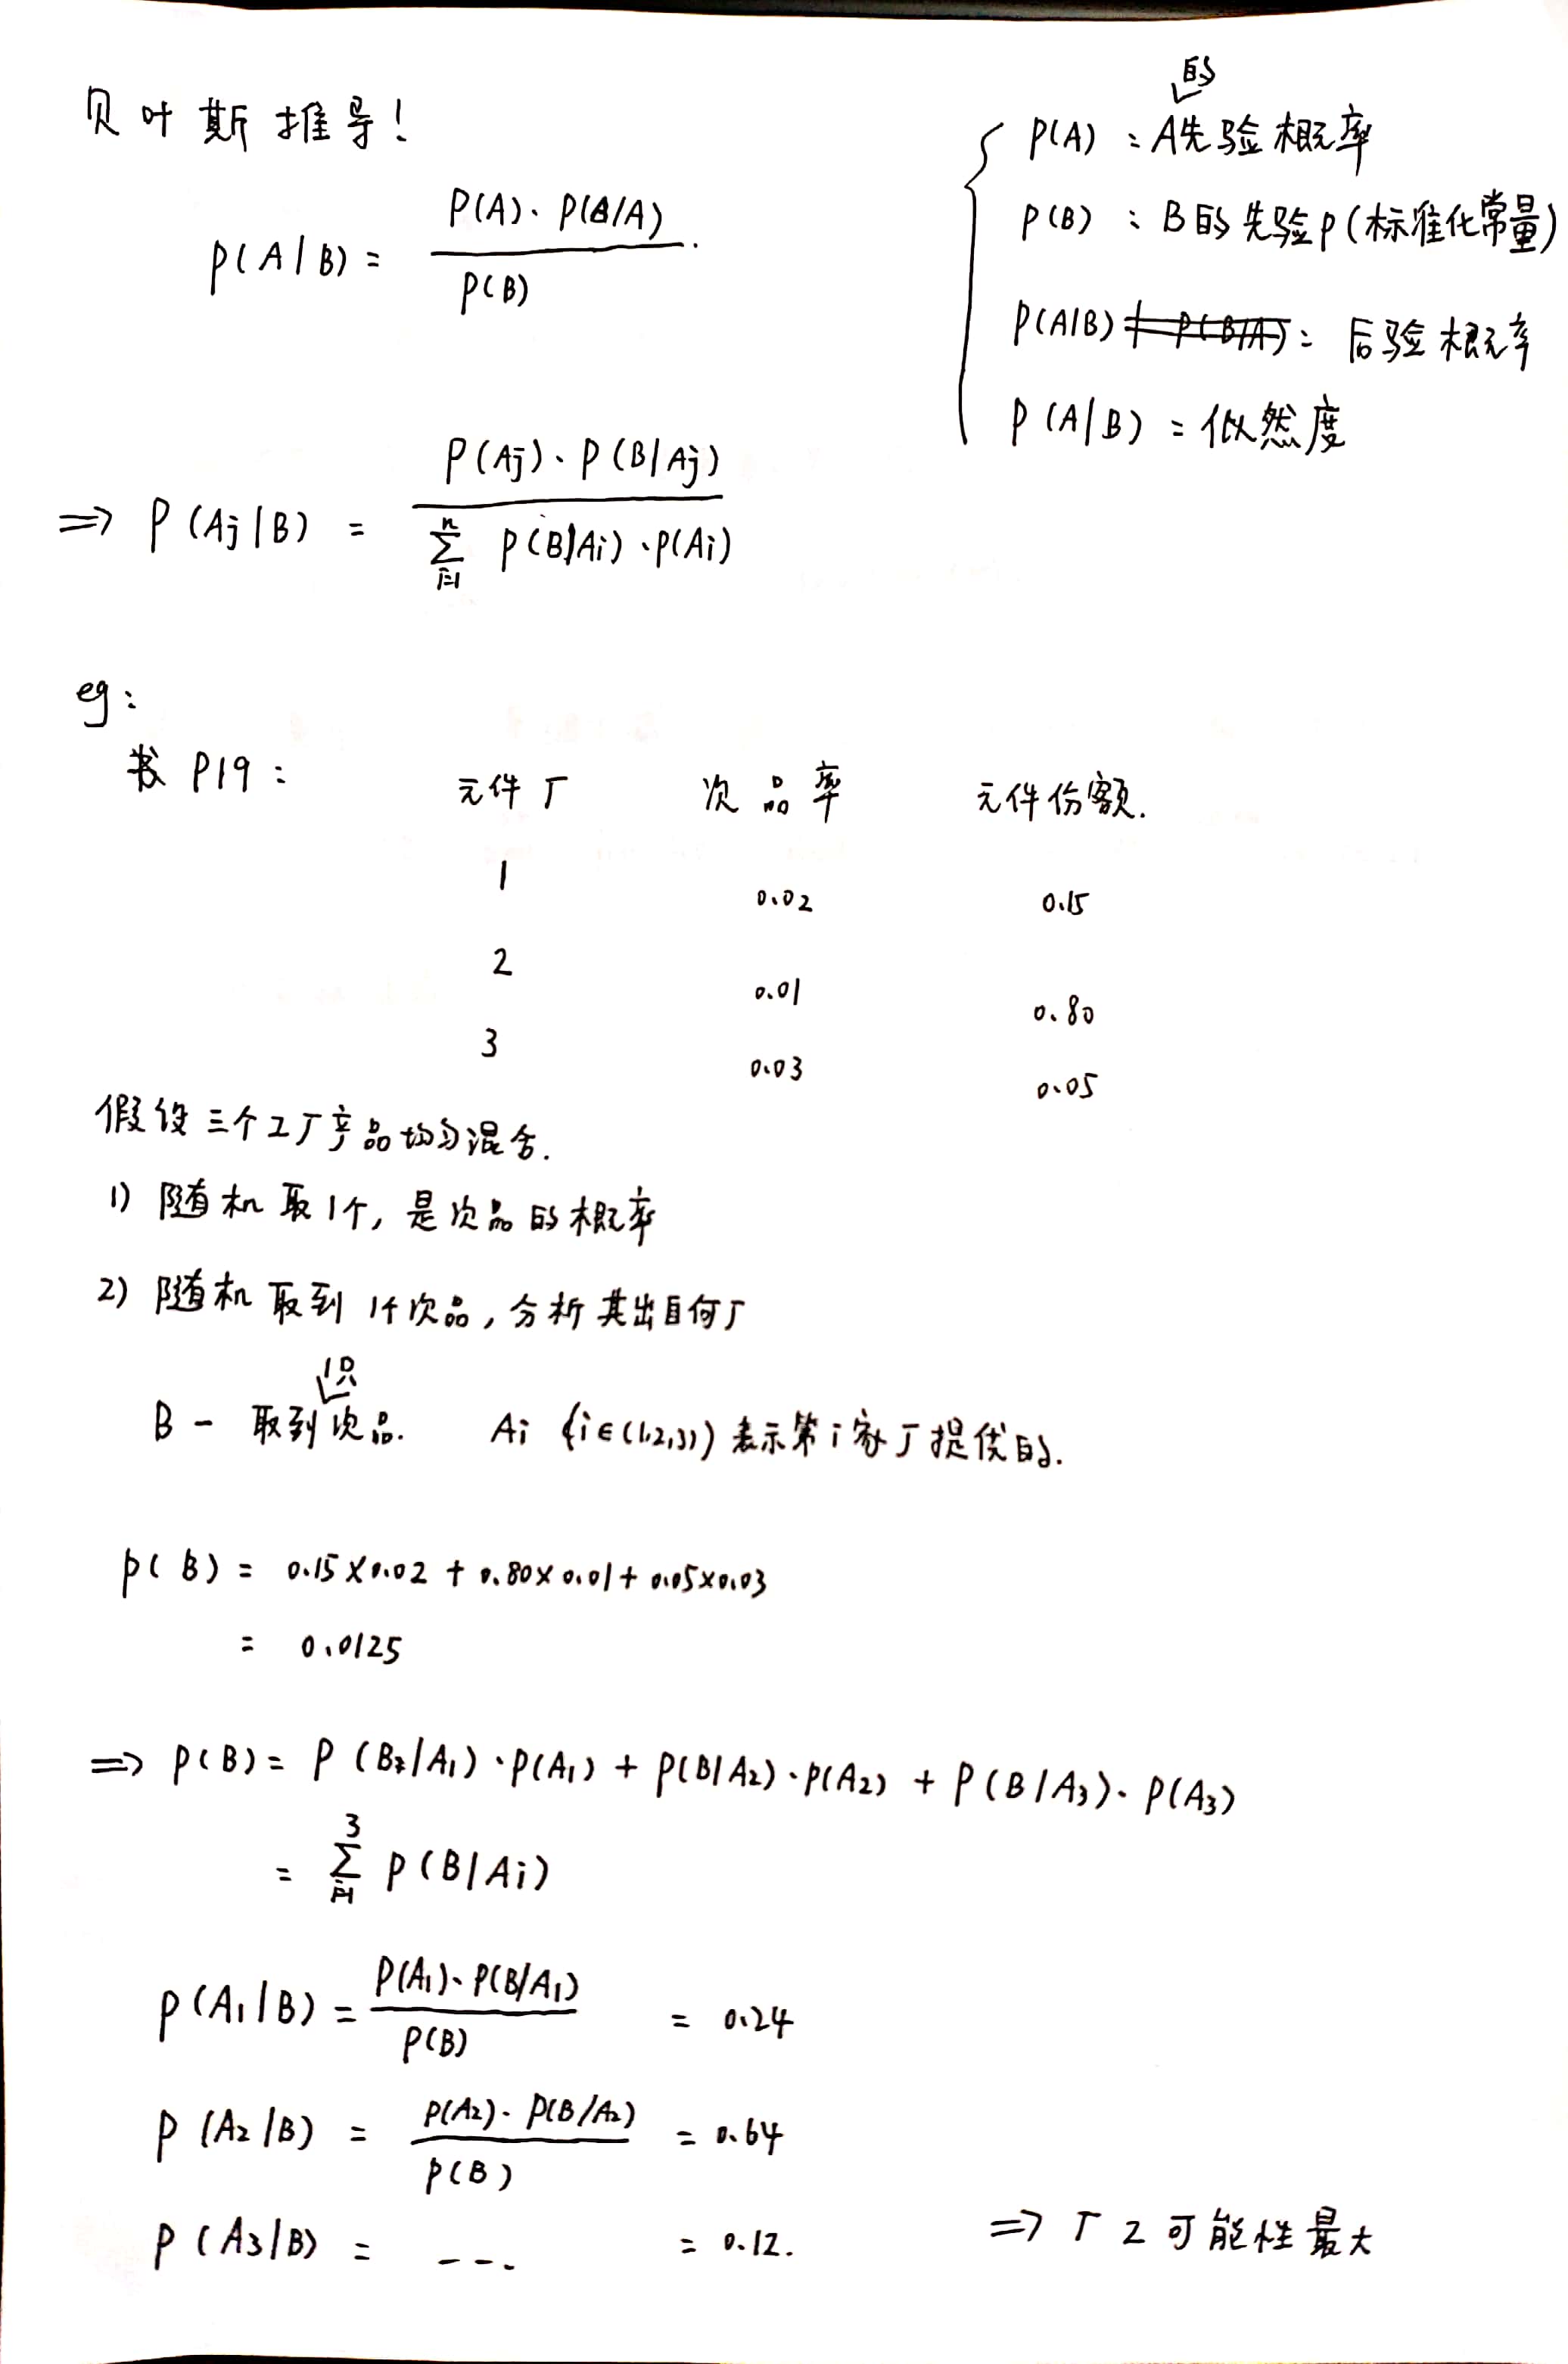 贝叶斯推导!
P(A|B) = P(A)·P(B/A) / P(B)
P(A):A的先验概率
P(B):B的先验P(标准化常量)
P(A|B):后验概率
P(A|B):似然度
⇒ P(Aj|B) = P(Aj)·P(B|Aj) / ∑ⁿᵢ₌₁ P(B|Ai)·P(Ai)
eg:
书 P19: 元件厂 次品率 元件份额.
1 0.02 0.15
2 0.01 0.80
3 0.03 0.05
假设三个工厂产品均匀混合.
1) 随机取1个, 是次品的概率
2) 随机取到1个次品, 分析其出自何厂
B - 取到1只次品. Ai (i∈(1,2,3)) 表示第i家厂提供的.
P(B) = 0.15×0.02 + 0.80×0.01 + 0.05×0.03
= 0.0125
⇒ P(B) = P(B/A₁)·P(A₁) + P(B/A₂)·P(A₂) + P(B/A₃)·P(A₃)
= ∑³ᵢ₌₁ P(B|Ai)
P(A₁|B) = P(A₁)·P(B/A₁) / P(B) = 0.24
P(A₂|B) = P(A₂)·P(B/A₂) / P(B) = 0.64
P(A₃|B) = --- = 0.12. ⇒ 厂2可能性最大